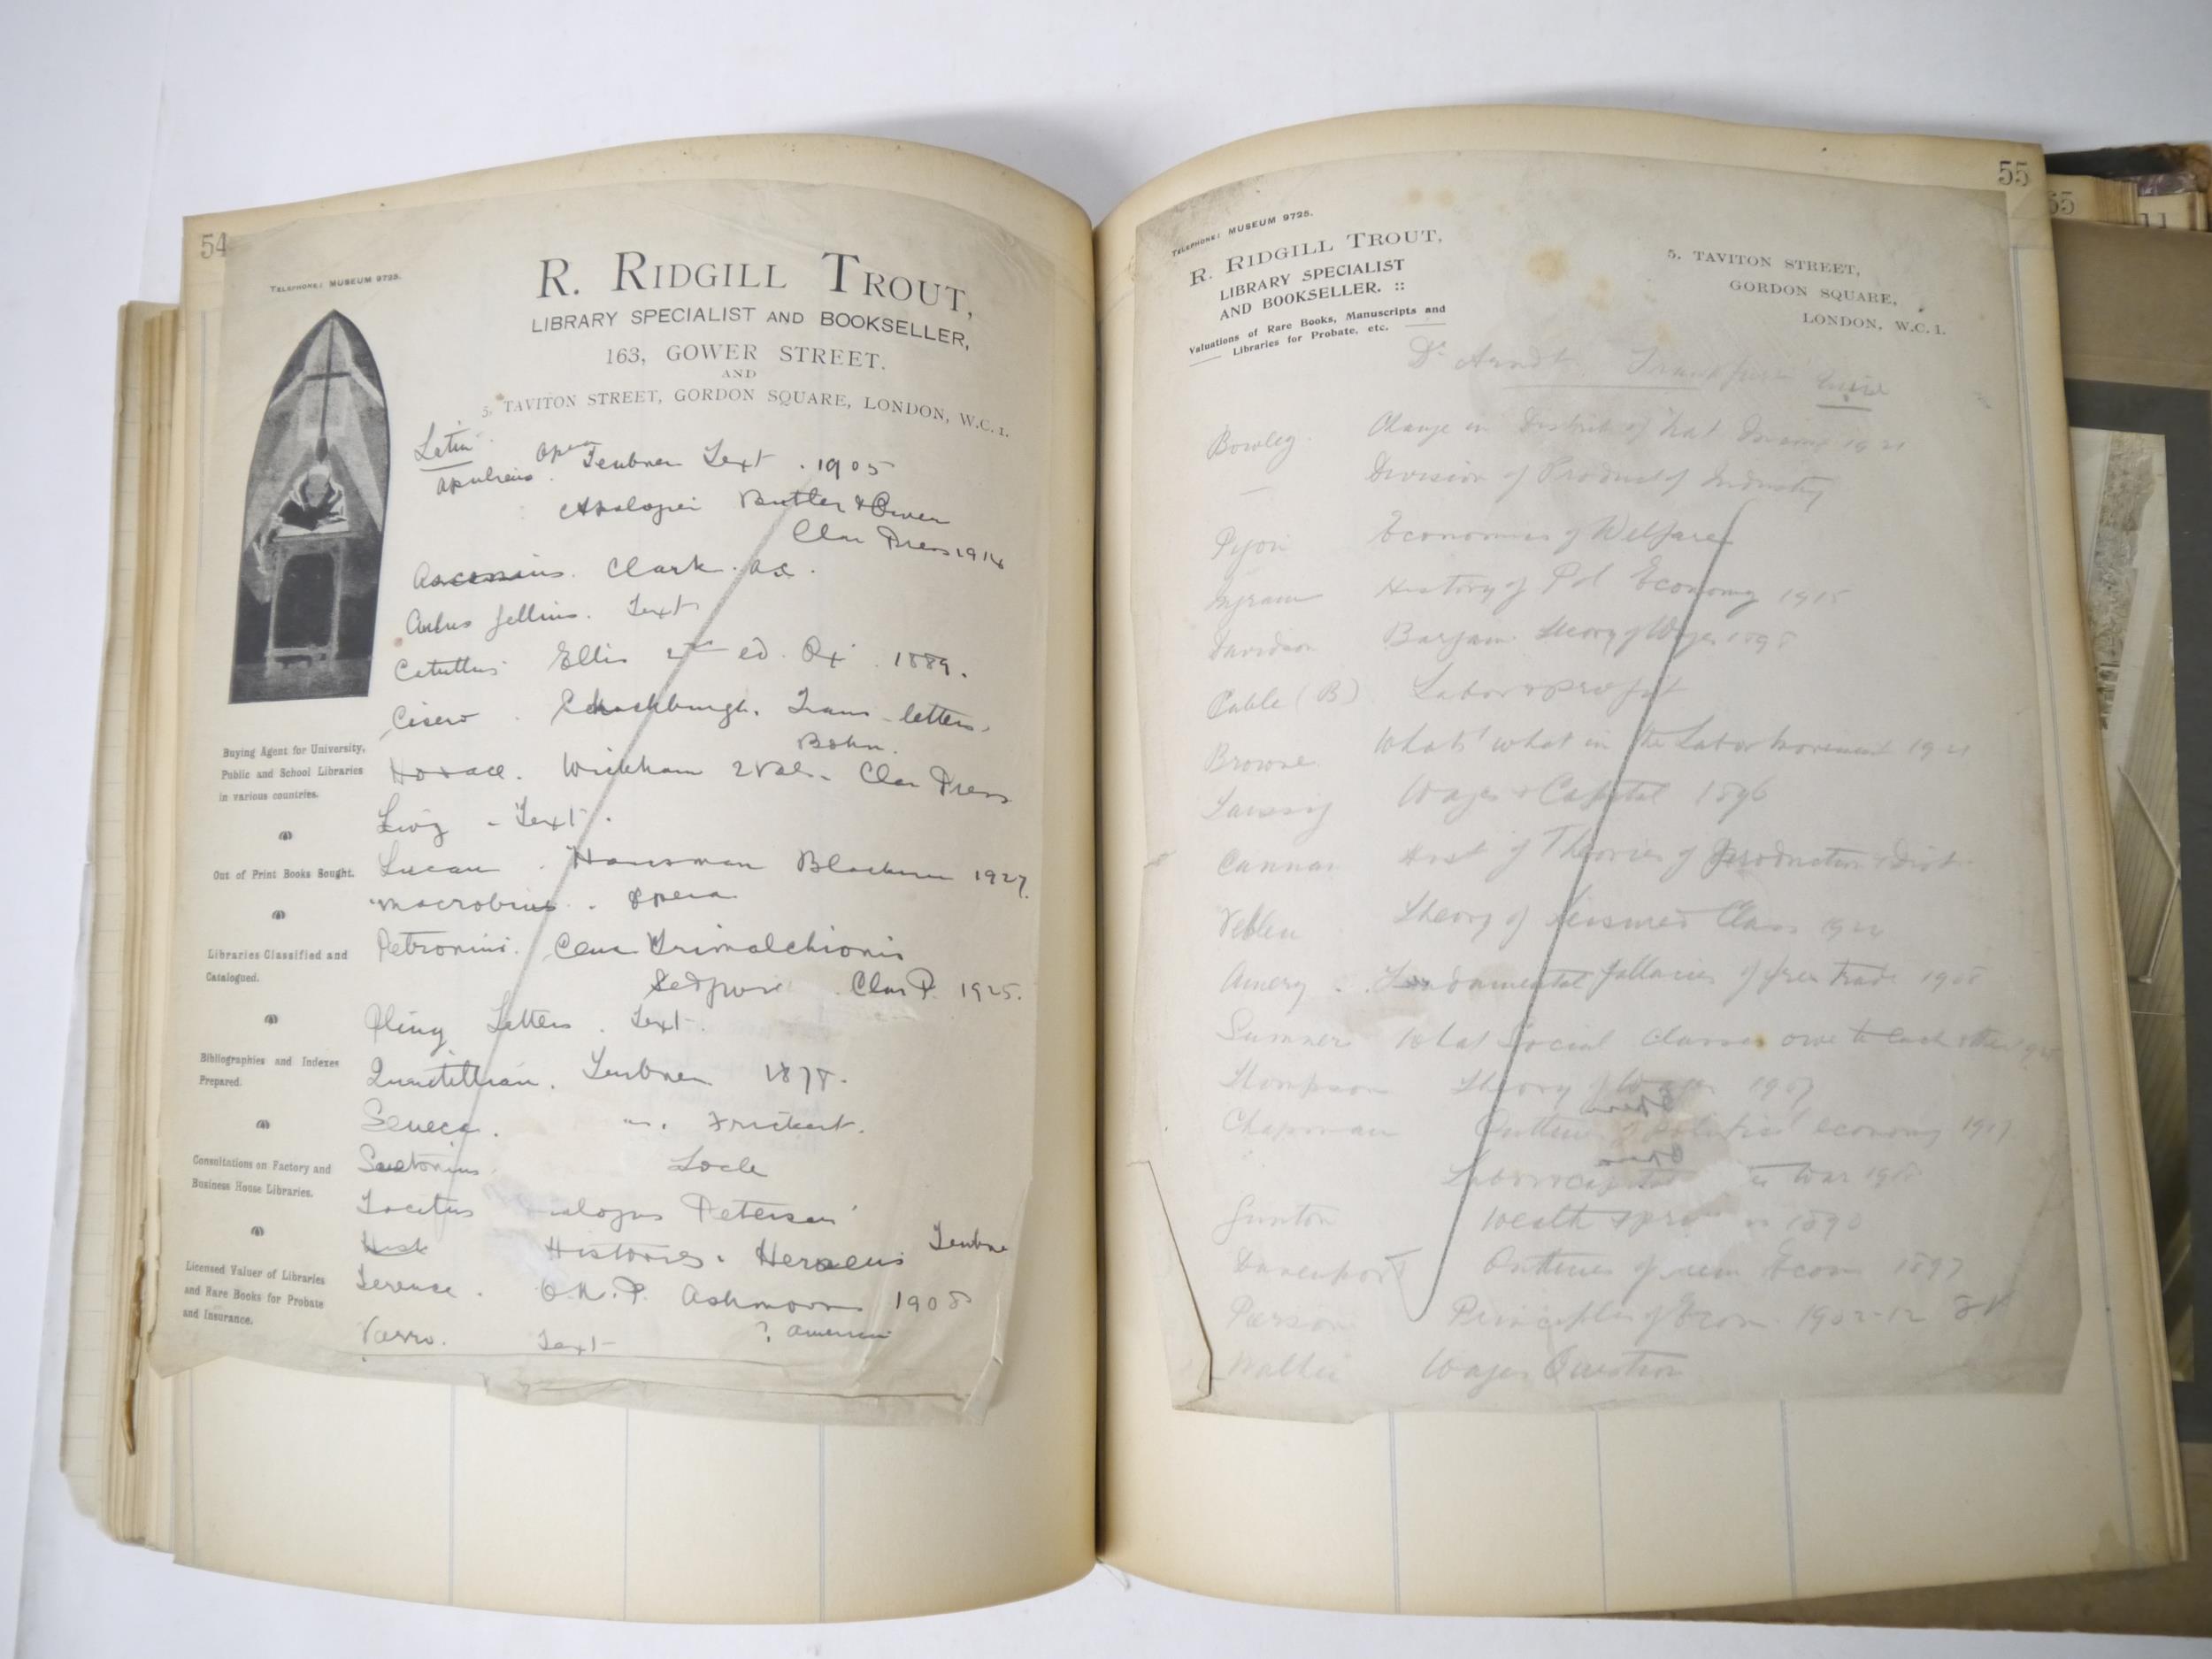 54
TELEPHONE: MUSEUM 9725.
R. RIDGILL TROUT,
LIBRARY SPECIALIST AND BOOKSELLER,
163, GOWER STREET.
AND
5, TAVITON STREET, GORDON SQUARE, LONDON, W.C.1.
Buying Agent for University,
Public and School Libraries
in various countries.
Out of Print Books Sought.
Libraries Classified and
Catalogued.
Bibliographies and Indexes
Prepared.
Consultations on Factory and
Business House Libraries.
Licensed Valuer of Libraries
and Rare Books for Probate
and Insurance.
Latin
Apuleius. Opera Teubner Text. 1905
Apologia Butler & Owen
Clar Press 1914
Clark.
Aulus Gellius. Text
Catullus Ellis 2nd ed. Ox. 1889.
Cicero. Trans letters.
Bohn.
Horace. Wickham 2 Vols. Clar Press
Livy - Text.
Lucan. Housman Blackwell 1927.
Macrobius. Opera
Petronius. Cena Trimalchionis
Sedgwick Clar P. 1925.
Pliny Letters. Text.
Quintillian. Teubner 1878.
Seneca. Frickert.
Suetonius.
Tacitus Dialogus Peterson
Hist Histories. Heraeus Teubner
Terence. Ashmore 1908
? American
Varro. Text
55
TELEPHONE: MUSEUM 9725.
R. RIDGILL TROUT,
LIBRARY SPECIALIST
AND BOOKSELLER. ::
Valuations of Rare Books, Manuscripts and
Libraries for Probate, etc.
5, TAVITON STREET,
GORDON SQUARE,
LONDON, W.C.1.
Dr Arndt. Frankfurt
Bowley Change in Distrib of Nat Income 1921
Division of Product of Industry
Pigou Economics of Welfare
Ingram History of Pol Economy 1915
Davidson Bargain Theory of Wages 1898
Cable (B) Labor & profit
Browne What's what in the Labor Movement 1921
Taussig Wages & Capital 1896
Cannan Hist of Theories of Production & Dist
Veblen Theory of Leisured Class
Amery. Fundamental fallacies of free trade 1908
Sumner What Social Classes owe to each other
Thompson Theory of Wages 1907
Chapman Outlines of political economy 1917
War
Gunton Wealth & 1890
Davenport Outlines of Econ 1897
Pierson Principles of Econ. 1902-12 2V
Wages Question